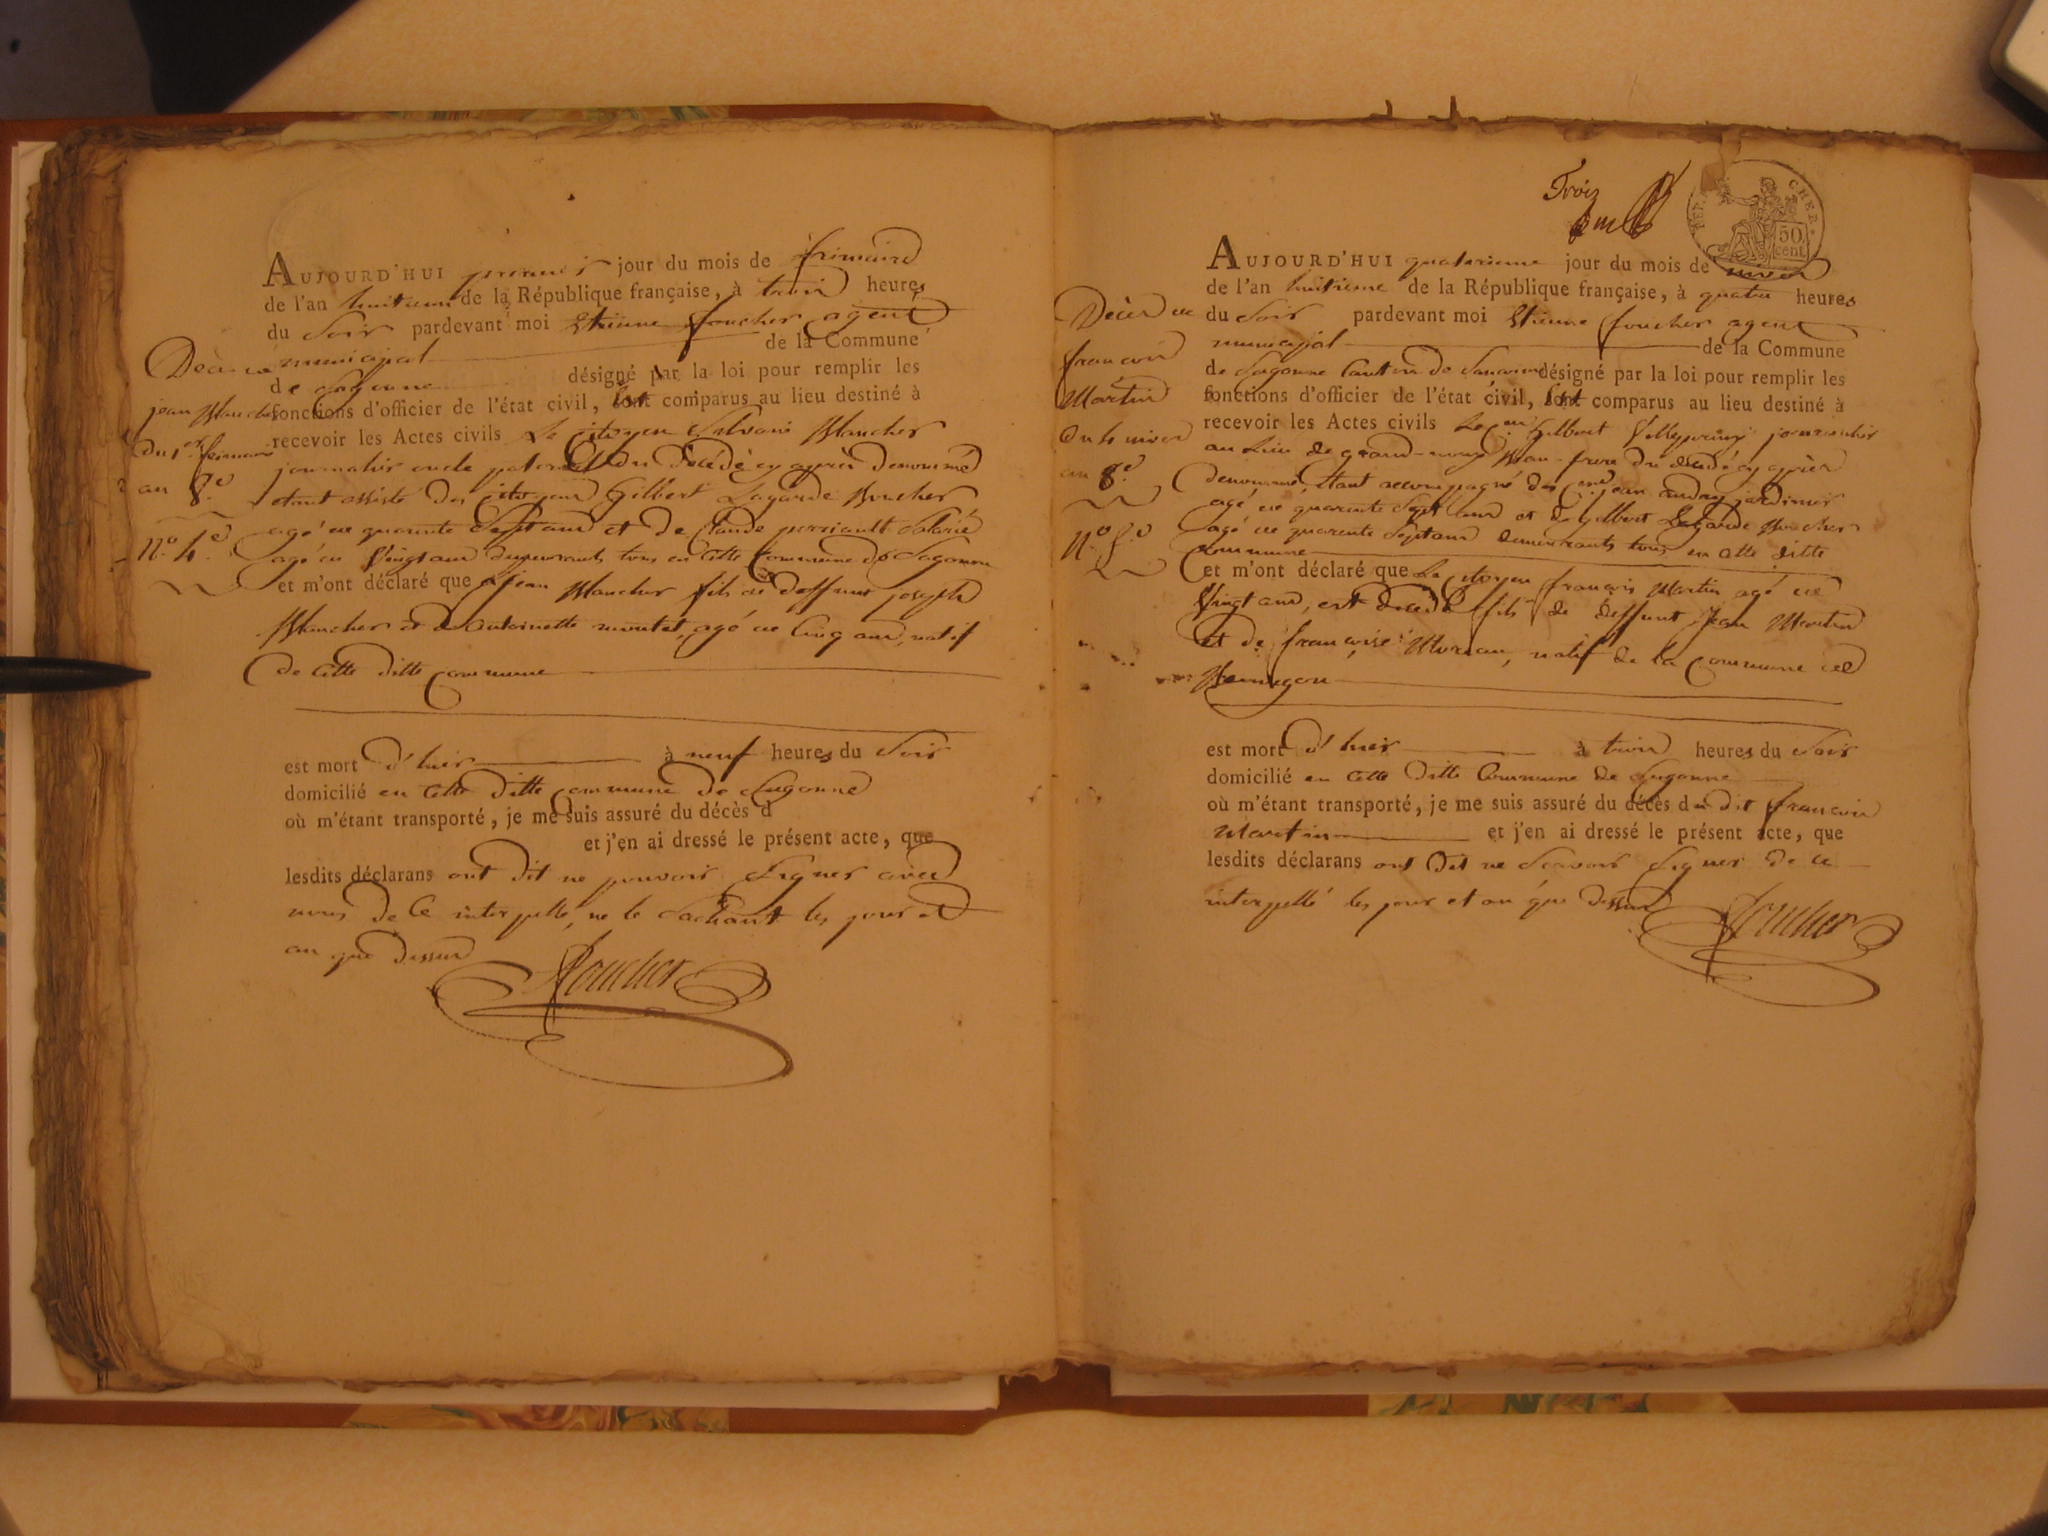 AUJOURD'HUI premier jour du mois de frimaire
de l'an huitieme de la République française, à trois heures
du soir pardevant moi Etienne foucher agent
municipal de la Commune
de Sagonne désigné par la loi pour remplir les
fonctions d'officier de l'état civil, sont comparus au lieu destiné à
recevoir les Actes civils Le citoyen Silvain Blancher
journalier oncle paternel du décédé cy après denommé
étant assisté des citoyens Gilbert Lagarde
agé de quarante Sept ans et de Claude
agé de Vingt ans demeurants tous en cette Commune de Sagonne
et m'ont déclaré que jean Blancher fils de deffunt joseph
Blancher et de Antoinette agé de Cinq ans, natif
de cette ditte commune
est mort d'hier à neuf heures du Soir
domicilié en cette ditte commune de Sagonne
où m'étant transporté, je me suis assuré du décès d
et j'en ai dressé le présent acte, que
lesdits déclarans ont dit ne pouvoir Signer avec
nous de ce interpellé, ne le Sachant les jour et
an que dessus
Foucher
Décès de
jean Blancher
du 1er frimaire
an 8.e
N.o 4.e
Trois
DEP. CHER.
50
cent
AUJOURD'HUI quatorzieme jour du mois de nivos
de l'an huitieme de la République française, à quatre heures
du soir pardevant moi Etienne foucher agent
municipal de la Commune
de Sagonne Canton de Sancoins désigné par la loi pour remplir les
fonctions d'officier de l'état civil, sont comparus au lieu destiné à
recevoir les Actes civils Le cen Gilbert journalier
au Lieu de beau-frere du décédé cy après
denommé, étant accompagné des jean jardinier
agé de quarente Sept ans et de Gilbert Lagarde
agé de quarente Sept ans demeurants tous en cette ditte
commune
et m'ont déclaré que Le citoyen françois Martin agé de
Vingt ans, est décédé fils de deffunt Jean Martin
et de françoise Moreau, natif de la Commune de
Bannegon
est mort d'hier à trois heures du Soir
domicilié en cette ditte Commune de Sagonne
où m'étant transporté, je me suis assuré du décès du dit françois
Martin et j'en ai dressé le présent acte, que
lesdits déclarans ont dit ne Scavoir Signer de ce
interpellé les jour et an que dessus
Foucher
Décès de
françois
Martin
nivos
an 8.e
N.o 5.e